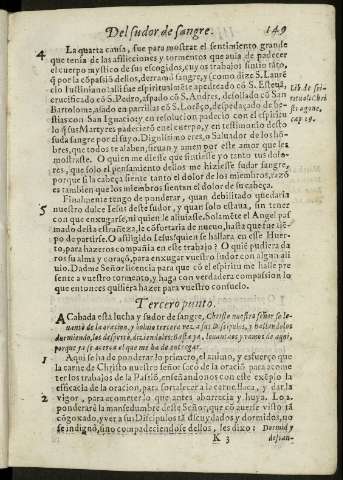 Del sudor de sangre. 149
4 La quarta causa, fue para mostrar el sentimiento grande
que tenia de las aflicciones y tormentos que auia de padecer
el cuerpo mystico de sus escogidos, cuyos trabajos sintio tãto,
q̃ por la cõpassiõ dellos, derramó sangre, y (como dize S. Laurẽ
cio Iustiniano) alli fue espiritualmẽte apedreado cõ S. Esteuã,
crucificado cõ S. Pedro, aspado cõ S. Andres, desollado cõ San
Bartolome, asado en parrillas cõ S. Lorẽço, despedaçado de bes
tias con San Ignacio: y en resolucion padecio con el espiritu
lo q̃ sus Martyres padecierõ en el cuerpo, y en testimonio desto
suda sangre por el suyo. Dignissimo eres, o Saluador de los hõ
bres, que todos te alaben, siruan y amen por este amor que les
mostraste. O quien me diesse que sintiesse yo tanto tus dolo-
res, que solo el pensamiento dellos me hiziesse sudar sangre,
porque si la cabeça siente tanto el dolor de los miembros, razõ
es tambien que los miembros sientan el dolor de su cabeça.
Lib. de
Chri
agone,
cap 19.
5 Finalmente tengo de ponderar, quan debilitado quedaria
nuestro dulce Iesus deste sudor, y quan solo estaua, sin tener
con que enxugarse, ni quien le aliuiasse. Solamẽte el Angel pas
mado desta estrañeza, le cõfortaria de nueuo, hasta que fue tiẽ-
po de partirse. O afligido Iesus! quien se hallara en esse Huer-
to, para hazeros compañia en este trabajo? O quiẽ pudiera da
ros su alma y coraçõ, para enxugar vuestro sudor con algun ali
uio. Dadme Señor licencia para que cõ el espiritu me halle pre
sente a vuestro tormento, y haga con verdadera compassion lo
que entonces quisiera hazer para vuestro consuelo.
Tercero punto.
ACabada esta lucha y sudor de sangre, Christo nuestro señor se le-
uantó de la oracion, y boluio tercera vez a sus Discipulos, y hallandolos
durmiendo, los desperto, diziendoles: Basta ya, leuantaos y vamos de aqui,
porque ya se acerca el que me ha de entregar.
1 Aqui se ha de ponderar lo primero, el animo, y esfuerço que
la carne de Christo nuestro señor sacó de la oraciõ para acome
ter los trabajos de la Passiõ, enseñandonos con este exẽplo la
eficacia de la oracion, para fortalecer a la carne flaca, y dar la
2 vigor, para acometer lo que antes aborrecia y huya. Lo 2.
põderaré la mansedumbre deste Señor, que cõ auerse visto tã
cõgoxado, y ver a sus Discipulos tã descuydados y dormidos, no
se indignó, sino compadeciendose dellos, les dixo: Dormid y
K 3 descan-